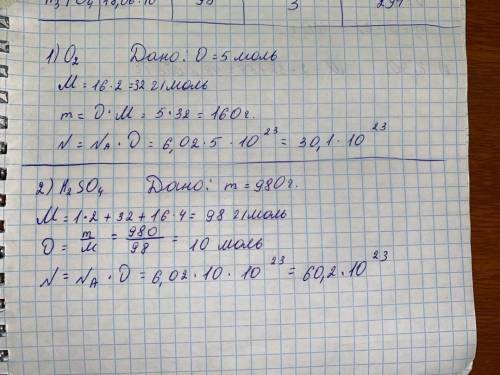 H₃PO₄ 18,06·10 98 3 294
1) O₂ Дано: υ = 5 моль
M = 16·2 = 32 г/моль
m = υ·M = 5·32 = 160г.
N = Nₐ·υ = 6,02·5·10²³ = 30,1·10²³
2) H₂SO₄ Дано: m = 980г.
M = 1·2 + 32 + 16·4 = 98 г/моль
υ = m/M = 980/98 = 10 моль
N = Nₐ·υ = 6,02·10·10²³ = 60,2·10²³